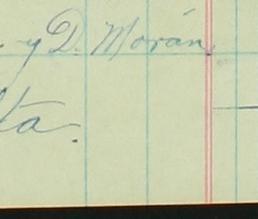 y D. Morán.
ta.